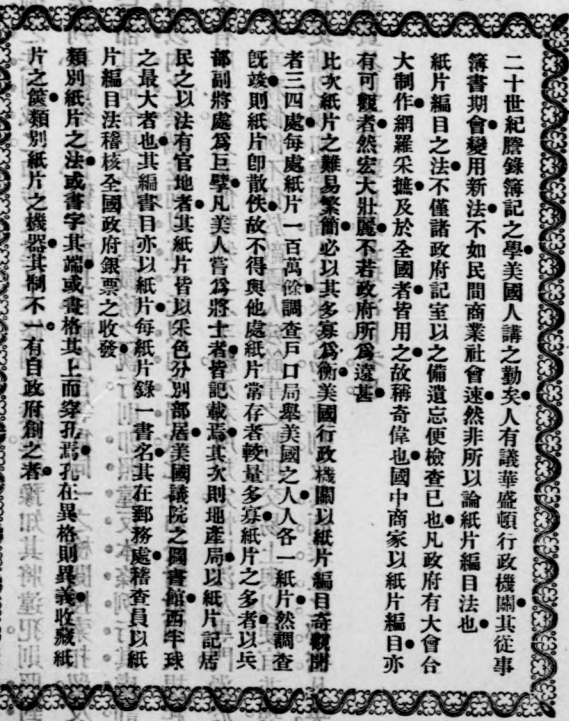 二十世紀謄錄簿記之學美國人講之勤矣人有議華盛頓行政機關其從事
簿書期會變用新法不如民間商業社會速然非所以論紙片編目法也
紙片編目之法不僅諸政府記室以之備遺忘便檢查已也凡政府有大會台
大制作網羅采摭及於全國者皆用之故稱奇偉也國中商家以紙片編目亦
有可觀者然宏大壯麗不若政府所爲遠甚
此次紙片之難易繁簡必以其多寡爲衡美國行政機關以紙片編目奇觀開
者三四處每處紙片一百萬餘調查戶口局舉美國之人人各一紙片然調查
旣竣則紙片卽散佚故不得與他處紙片常存者較量多寡紙片之多者以兵
部副將處爲巨擘凡美人嘗爲將士者皆記載焉其次則地產局以紙片記居
民之以法有官地者其紙片皆以采色分別部居美國議院之圖書館西半球
之最大者也其編書目亦以紙片每紙片錄一書名其在郵務處稽查員以紙
片編目法稽核全國政府銀票之收發
類別紙片之法或書字其端或書格其上而穿孔焉孔在異格則異義收藏紙
片之篋類別紙片之機器其制不一有自政府創之者